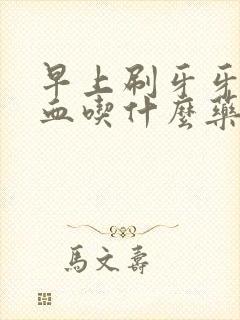 早上刷牙牙
血喫什麽藥
馬文壽